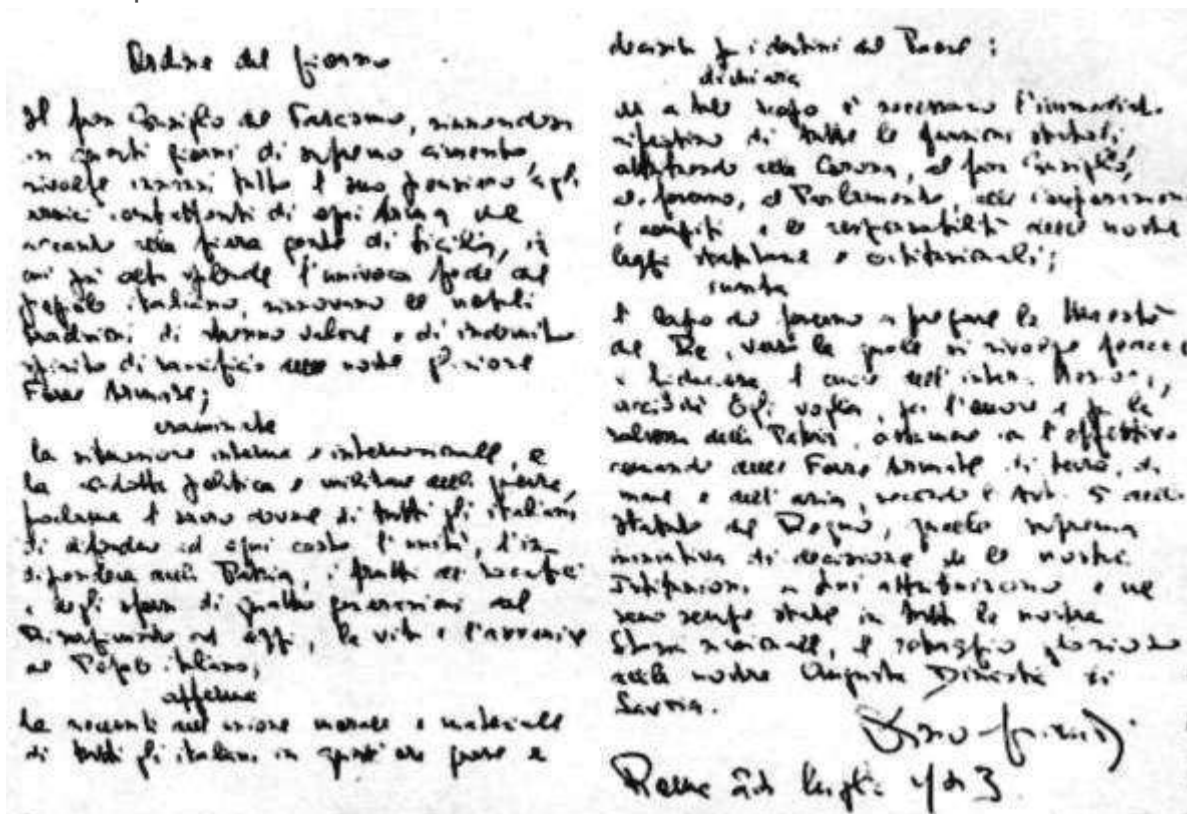 Ordine del giorno
Il Gran Consiglio del Fascismo, riunendosi
in questi giorni di supremo cimento,
rivolge innanzi tutto il suo pensiero agli
eroici combattenti di ogni Arma che
accanto alla fiera gente di Sicilia, in
cui più alta risplende l'univoca fede del
popolo italiano, rinnovano le nobili
tradizioni di strenuo valore e di indomito
spirito di sacrificio delle nostre gloriose
Forze Armate;
esaminata
la situazione interna e internazionale, e
la condotta politica e militare della guerra,
proclama il sacro dovere di tutti gli italiani
di difendere ad ogni costo l'unità, l'in-
dipendenza della Patria, i frutti dei sacrifici
e degli sforzi di quattro generazioni dal
Risorgimento ad oggi, la vita e l'avvenire
del Popolo italiano;
afferma
la necessità dell'unione morale e materiale
di tutti gli italiani in quest'ora grave e
decisiva per i destini del Paese;
dichiara
che a tale scopo è necessario l'immediato
ripristino di tutte le funzioni statali,
attribuendo alla Corona, al Gran Consiglio,
al Governo, al Parlamento, alle Corporazioni
i compiti e le responsabilità delle nostre
leggi statutarie e costituzionali;
invita
il Capo del Governo a pregare la Maestà
del Re, verso la quale si rivolge fedele
e fiducioso il cuore dell'intera Nazione,
affinché Egli voglia, per l'onore e per la
salvezza della Patria, assumere con l'effettivo
comando delle Forze Armate di terra, di
mare e dell'aria, secondo l'Art. 5 dello
Statuto del Regno, quella suprema
iniziativa di decisione che le nostre
Istituzioni a Lui attribuiscono e che
sono sempre state in tutta la nostra
Storia nazionale, il retaggio glorioso
della nostra Augusta Dinastia di
Savoia.
Dino Grandi
Roma 24 luglio 1943